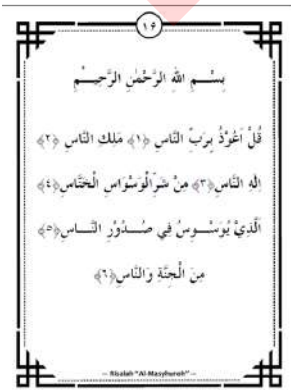 ١٦
بِسْمِ اللهِ الرَّحْمٰنِ الرَّحِيْمِ
قُلْ اَعُوْذُ بِرَبِّ النَّاسِ ﴿١﴾ مَلِكِ النَّاسِ ﴿٢﴾
اِلٰهِ النَّاسِ ﴿٣﴾ مِنْ شَرِّ الْوَسْوَاسِ الْخَنَّاسِ ﴿٤﴾
الَّذِيْ يُوَسْوِسُ فِي صُدُوْرِ النَّاسِ ﴿٥﴾
مِنَ الْجِنَّةِ وَالنَّاسِ ﴿٦﴾
— Risalah "Al-Masyhuroh" —